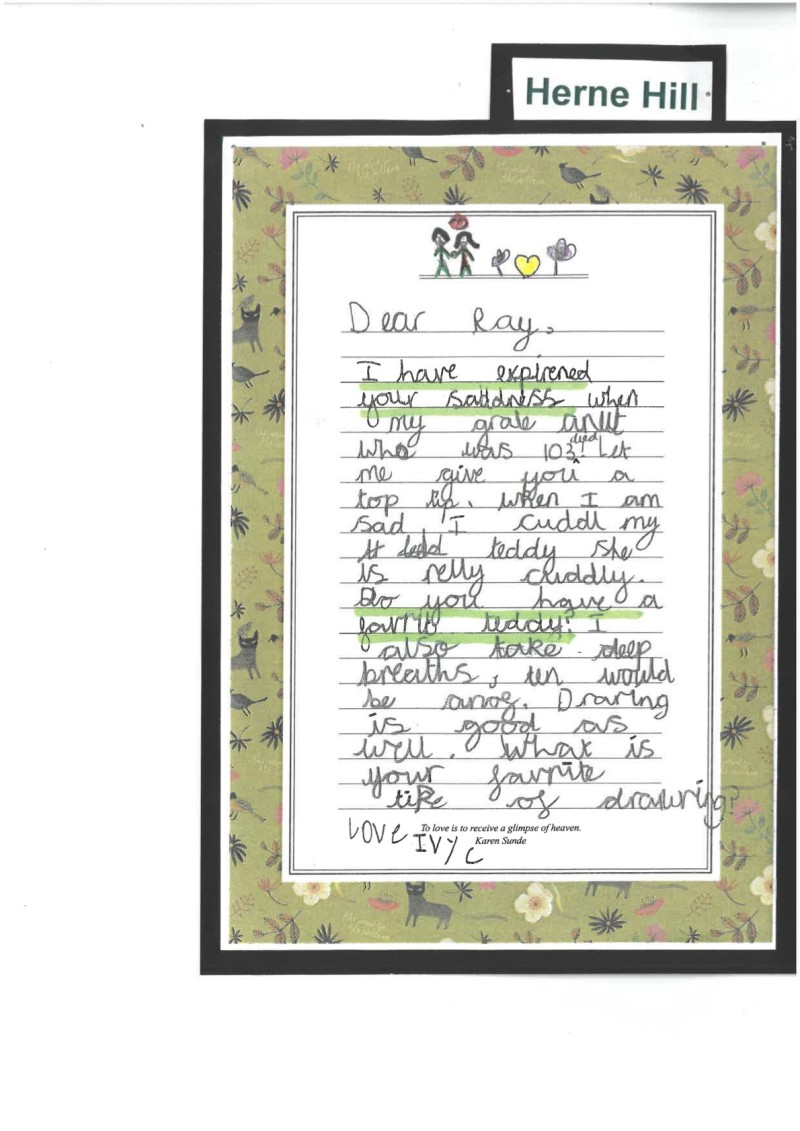 Herne Hill
Dear Ray,
I have expirened
your saddness when
my grate
died
who was 103! Let
me give you a
top tip. when I am
sad I cuddl my
teddy she
is relly cuddly.
Do you have a
teddy? I
also take deep
breaths, ten would
be Draring
is good as
well. What is
your favrite
of drawring?
To love is to receive a glimpse of heaven.
Karen Sunde
Love
IVY C